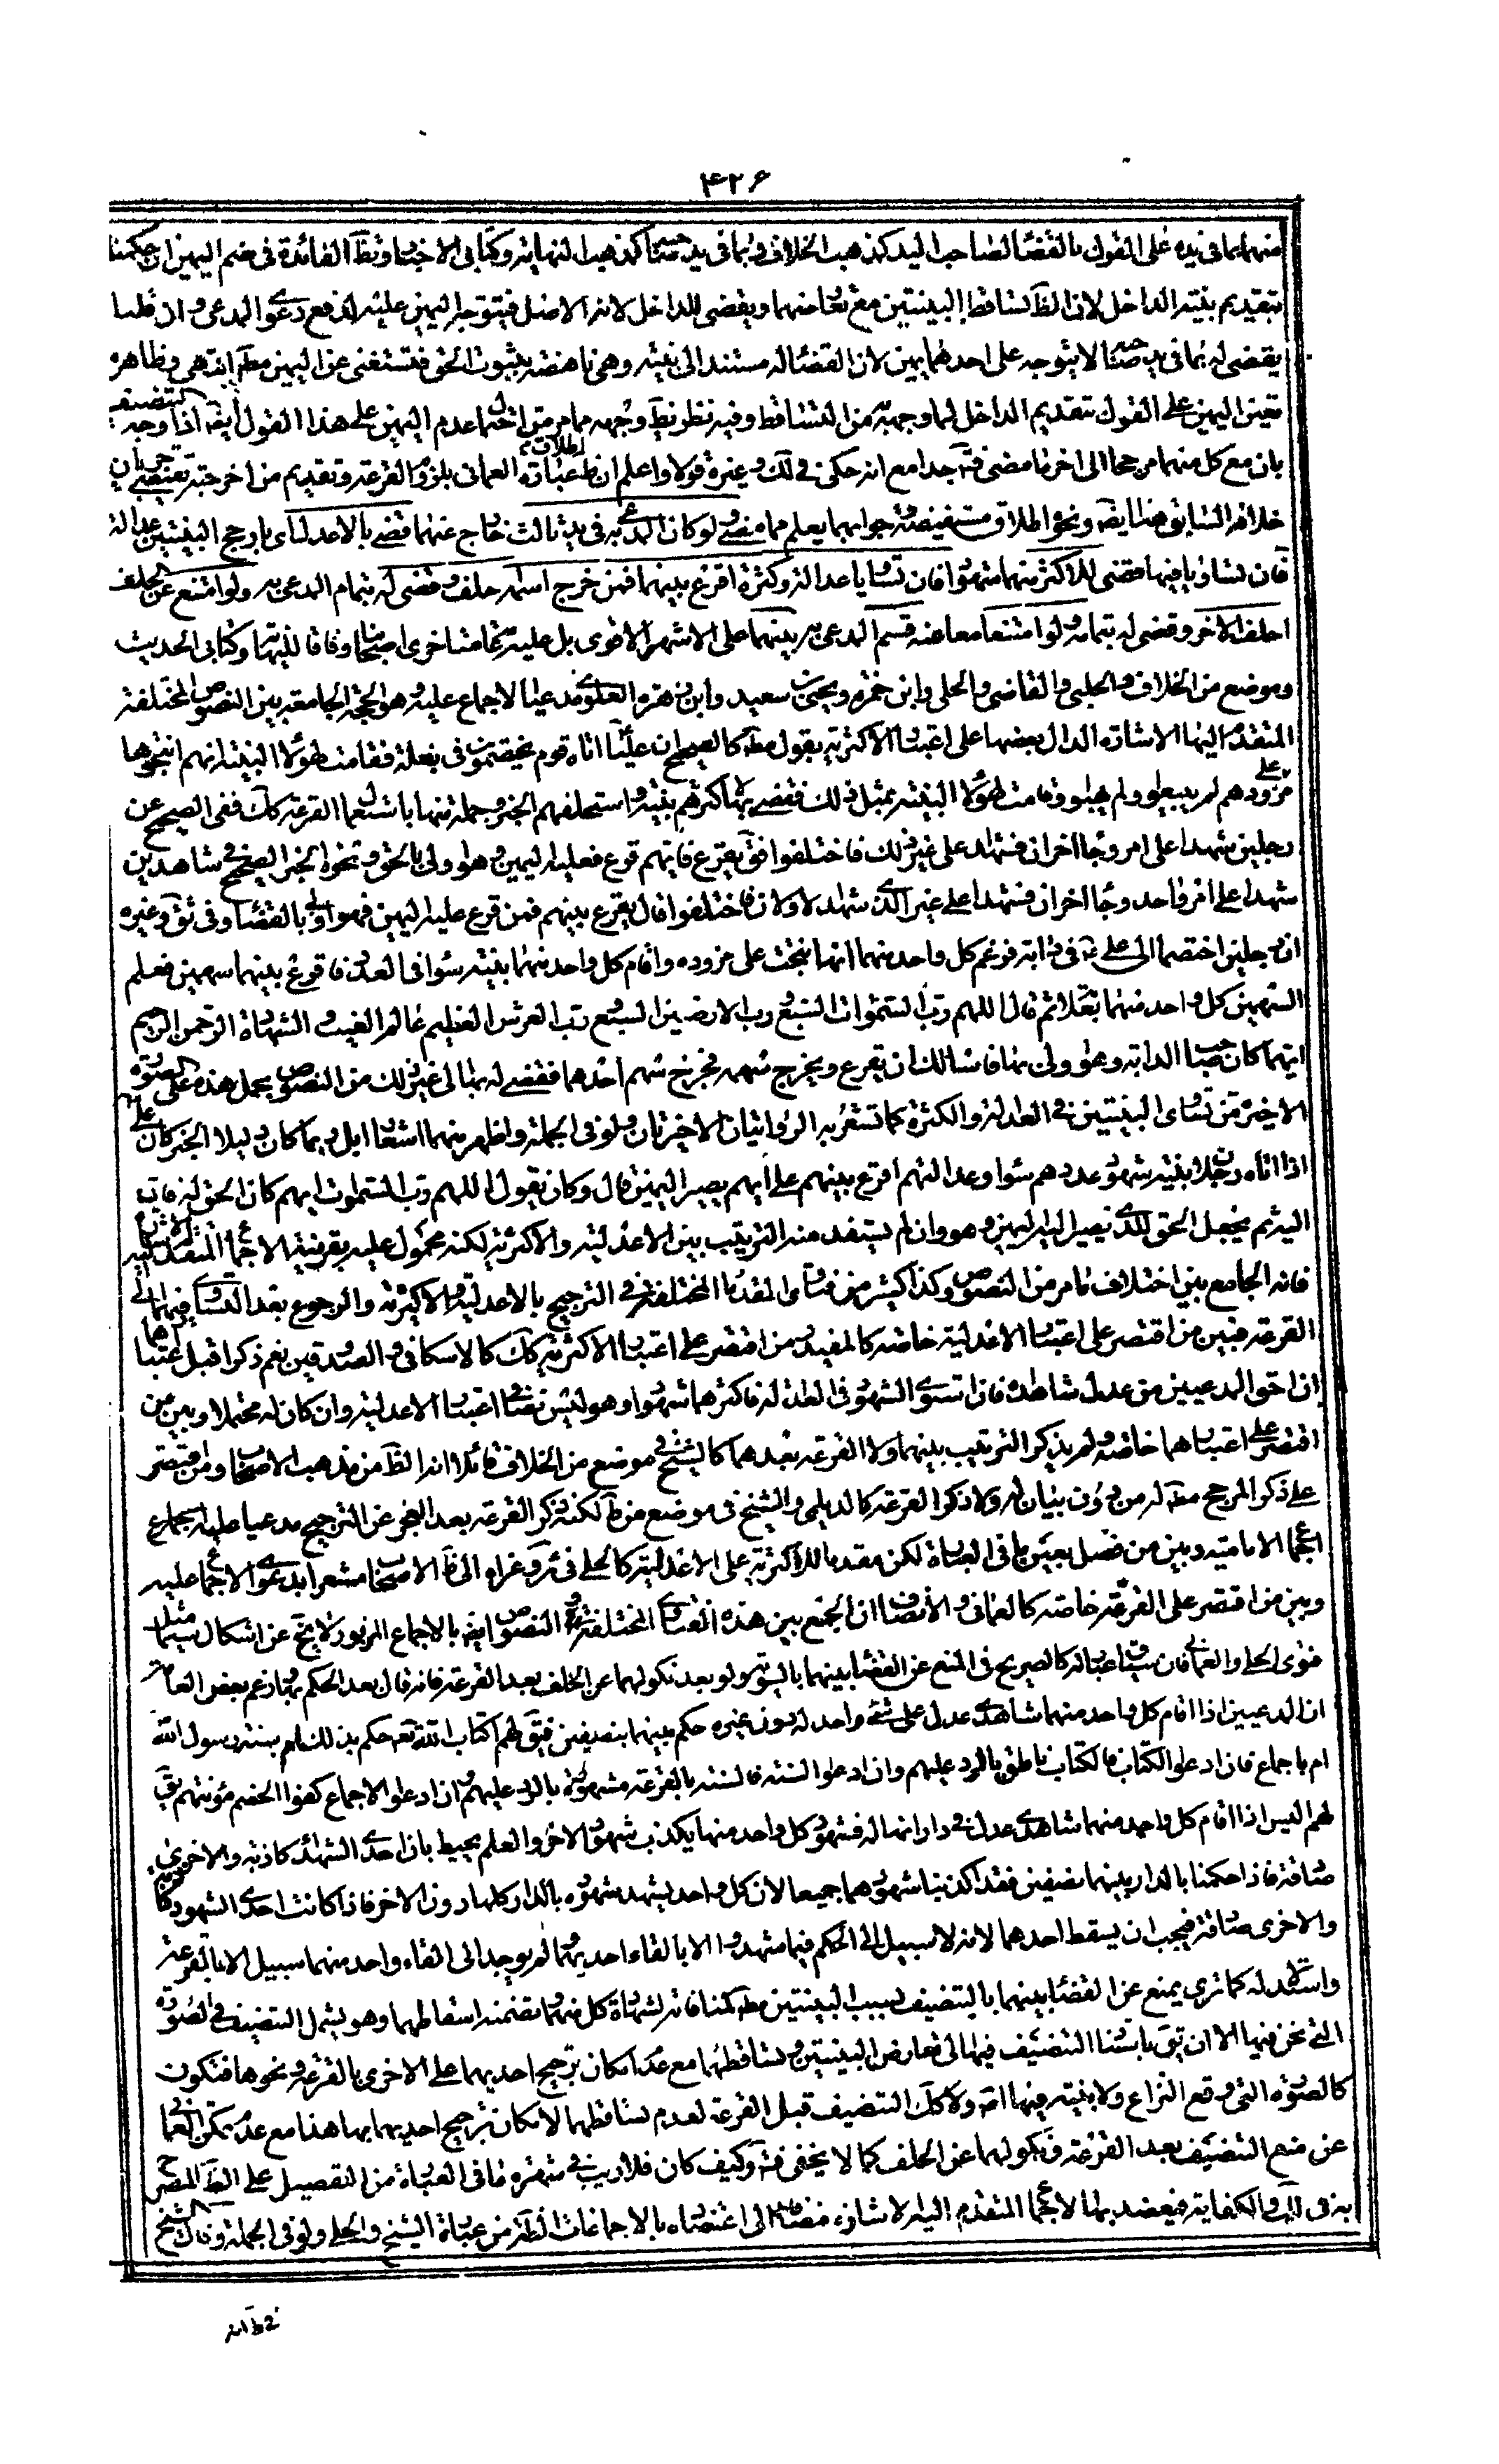 ۴۲۶
منهما بما فی یده علی القول بالقضاء لصاحب الید کمذهب الخلاف و بما فی ید صاحبه کمذهب النهایه و کتابی الاخبار و تظ الفائدة فی ضم الیمین ان حکمنا
بتقدیم بینة الداخل لان الظ تساقط البینتین مع تعارضهما و یقضی للداخل لانه الاصل فیتوجه الیمین علیه لدفع دعوی المدعی و ان قلنا
یقضی له بما فی ید صاحبه لا یتوجه علی احدهما یمین لان القضاء له مستند الی بینته و هی ناهضة بثبوت الحق فتستغنی عن الیمین مط انتهی و ظاهره
تعین الیمین علی القول بتقدیم الداخل لما وجهه من التساقط و فیه نظر وجهه مما مر من عدم الیمین علی هذا القول ایضا اذا وجه التنصیف
بان مع کل منهما مرجحا الی اخر ما مضی فت جدا مع انه حکی فی لک و غیره قولا و اعلم ان اطلاق عبارة العمانی بلزوم القرعة و تقدیم من اخرجته یقتضی جریان
خلافه السابق هنا ایضا و نحوه اطلاق مستفیضة جوابهما یعلم مما مضی و لو کان المدعی به فی ید ثالث خارج عنهما قضی بالاعدل ای بارجح البینتین عدالة
فان تساویا فیها قضی للاکثر منهما شهودا فان تساویا عدالة و کثرة اقرع بینهما فمن خرج اسمه حلف و قضی له بتمام المدعی به و لو امتنع عن الحلف
احلف الاخر و قضی له بتمامه و لو امتنعا معا عنه قسم المدعی به بینهما علی الاشهر الاقوی بل علیه عامة متاخری اصحابنا وفاقا للنهایة و کتابی الحدیث
و موضع من الخلاف و الحلبی و القاضی و الحلی و ابن حمزه و یحیی بن سعید و ابن زهره العلوی مدعیا الاجماع علیه و هو الحجة الجامعة بین النصوص المختلفة
المتقدم الیها الاشارة الدال بعضها علی اعتبار الاکثریة بقول مط کالصحیح ان علیا اتاه قوم یختصمون فی بغلة فقامت لهؤلاء البینة انهم انتجوها
علی مزودهم لم یبیعوا و لم یهبوا و قامت لهؤلاء البینة بمثل ذلک فقضی بها لاکثرهم بینة و استحلفهم الخبر و جملة منها باستعمال القرعة کک ففی الصحیح عن
رجلین شهدا علی امر و جاء اخران فشهدا علی غیر ذلک فاختلفوا فق یقرع فایهم قرع فعلیه الیمین و هو اولی بالحق و نحوه الخبر الصحیح فی شاهدین
شهدا علی امر واحد و جاء اخران فشهدا علی غیر الذی شهد الاولان فاختلفوا قال یقرع بینهم فمن قرع علیه الیمین فهو اولی بالقضاء و فی ثق و غیره
ان رجلین اختصما الی علی ع فی دابة فزعم کل واحد منهما انها نتجت علی مزوده و اقام کل واحد منهما بینة سواء فی العدد فاقرع بینهما سهمین فعلم
السهمین کل واحد منهما بعلامة ثم قال اللهم رب السموات السبع و رب الارضین السبع رب العرش العظیم عالم الغیب و الشهادة الرحمن الرحیم
ایهما کان صاحب الدابة و هو اولی بها فاسالک ان یقرع و یخرج سهمه فخرج سهم احدهما فقضی له بها الی غیر ذلک من النصوص بحمل هذه علی الصورة
الاخیرة من تساوی البینتین فی العدالة و الکثرة کما تشعر به الروایتان الاخیرتان و لو فی الجملة و اظهر منهما اشعارا بل ربما کان دلیلا الخبر کان علی
اذا اتاه رجلان ببینة شهود عددهم سواء و عدالتهم اقرع بینهم علی ایهم یصیر الیمین قال و کان یقول اللهم رب السموات ایهم کان الحق له فاده
الیه ثم یجعل الحق للذی یصیر الیه الیمین و هو و ان لم یستفد منه الترتیب بین الاعدلیة و الاکثریة لکنه محمول علیه بقرینة الاجماع المتقدم الیه الاشارة
فانه الجامع بین اختلاف ما مر من النصوص و کذا کثیر من فتاوی القدماء المختلفة فی الترجیح بالاعدلیة و الاکثریة و الرجوع بعد التساوی فیهما الی
القرعة فبین من اقتصر علی اعتبار الاعدلیة خاصة کالمفید و من اقتصر علی اعتبار الاکثریة کک کالاسکافی و الصدوقین نعم ذکرا قبل اعتبارها
ان احق المدعیین من عدل شاهداه فان استوی الشهود فی العدالة فاکثرهما شهودا و هو لیس نصا فی اعتبار الاعدلیة و ان کان له محتملا و بین من
اقتصر علی اعتبارهما خاصة و لم یذکر الترتیب بینهما و لا القرعة بعدهما کالشیخ فی موضع من الخلاف قائلا انه الظ من مذهب الاصحاب و من اقتصر
علی ذکر المرجح مط له من دون بیان له و لا ذکر القرعة کالدیلمی و الشیخ فی موضع من ط لکنه ذکر القرعة بعد العجز عن الترجیح مدعیا علیه اجماع
الامامیة و بین من فصل بعین ما فی العبارة لکن مقدما للاکثریة علی الاعدلیة کالحلی فی ئر و عزاه الی ظ الاصحاب مشعرا بدعوی الاجماع علیه
و بین من اقتصر علی القرعة خاصة کالعمانی و الانصاف ان الجمع بین هذه الفتاوی المختلفة و النصوص ایضا بالاجماع المزبور لا یخ عن اشکال سیما مثل
فتوی الحلی و العمانی فان سیاق عبارته کالصریح فی المنع عن القضاء بینهما بالسویة و لو بعد نکولهما عن الحلف بعد القرعة فانه قال بعد الحکم بها زعم بعض العامة
ان المدعیین اذا اقام کل واحد منهما شاهدی عدل علی شئ واحد له دون غیره حکم بینهما بنصفین فیق لهم اکتاب الله تعه حکم بذلک ام بسنة رسول الله
ام باجماع فان ادعوا الکتاب فالکتاب ناطق بالرد علیهم و ان ادعوا السنة فالسنة بالقرعة مشهورة بالرد علیهم و ان ادعوا الاجماع کفوا الخصم مؤنتهم یق
لهم الیس اذا اقام کل واحد منهما شاهدی عدل فی دار انها له فشهود کل واحد منهما یکذب شهود الاخر و العلم یحیط بان احدی الشهادتین کاذبة و الاخری
صادقة فاذا حکمنا بالدار بینهما نصفین فقد اکذبنا شهودهما جمیعا لان کل واحد یشهد شهوده بالدار کلها دون الاخر فاذا کانت احدی الشهود کاذبة
و الاخری صادقة فیجب ان یسقط احدهما لانه لا سبیل الی الحکم فیما شهدوا الا بالقاء احدیهما و لم یوجد الی القاء واحد منهما سبیل الا بالقرعة
و استدلاله کما تری یمنع عن القضاء بینهما بالتنصیف بسبب البینتین مط لمنافاته لشهادة کل منهما و تضمنه اسقاطهما و هو یشمل التنصیف فی الصورة
التی نحن فیها الا ان یق باستناد التنصیف فیها الی تعارض البینتین و تساقطهما مع عدم امکان ترجیح احدیهما علی الاخری بالقرعة و نحوها فتکون
کالصورة التی وقع النزاع و لا بینة فیها اصلا و لا کک التنصیف قبل القرعة لعدم تساقطهما لامکان ترجیح احدیهما بها هذا مع عدم تمکن العمانی
عن منع التنصیف بعد القرعة و نکولهما عن الحلف کما لا یخفی فت و کیف کان فلا ریب فی شهرة ما فی العبارة من التفصیل علی الظ المصرح
به فی لک و الکفایة فیعضد بها الاجماع المتقدم الیه الاشارة مضافا الی اعتضاده بالاجماعات الظاهرة من عبارة الشیخ و الحلی و لو فی الجملة و قال الشیخ